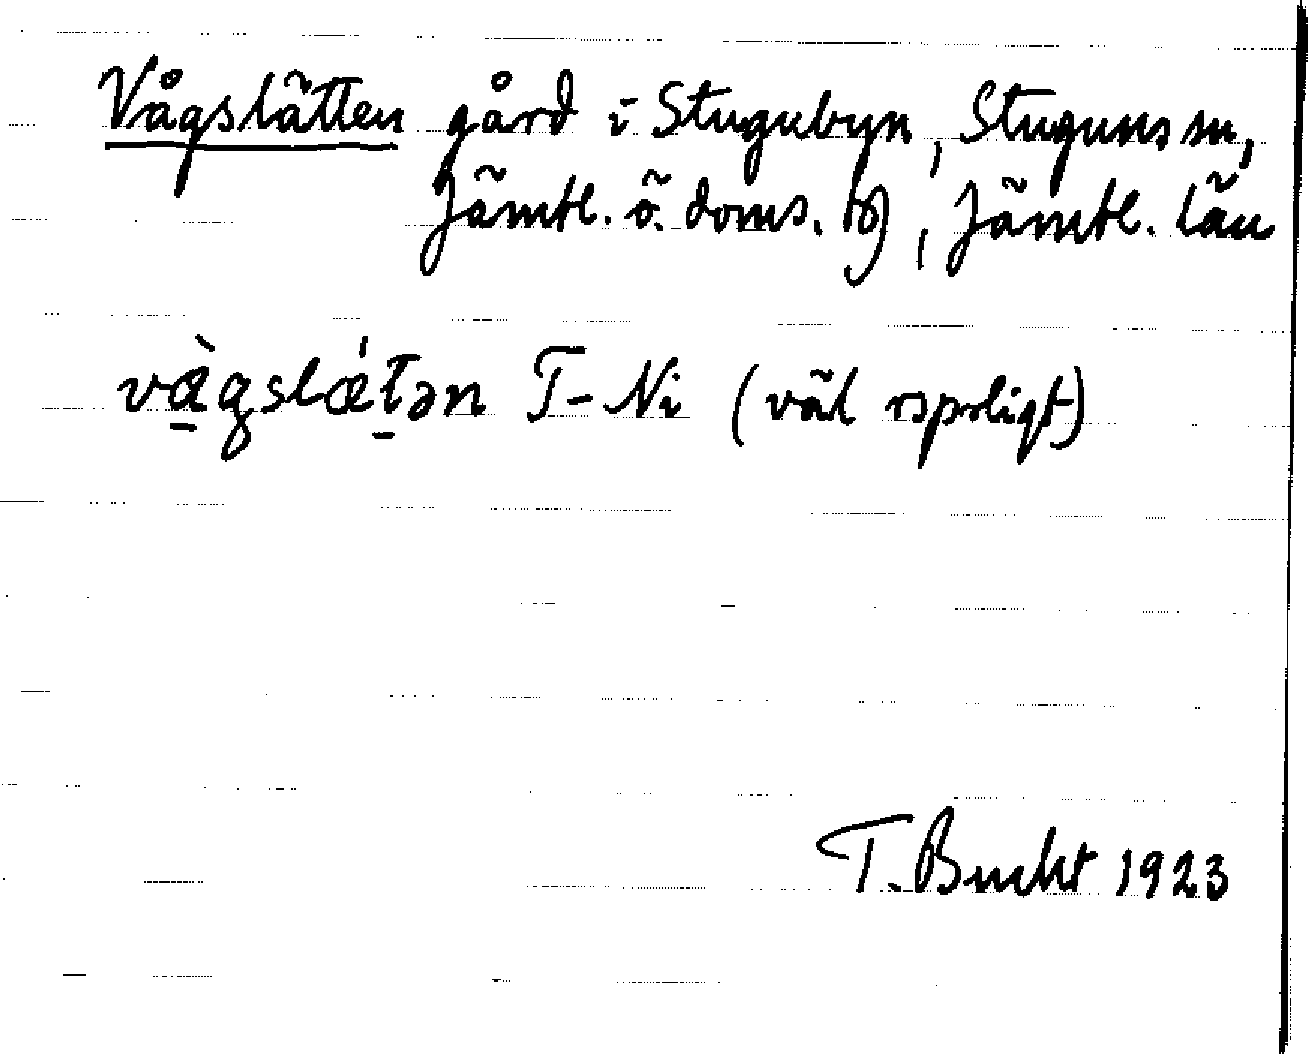 Vågslätten gård i Stugubyn, Stuguns sn,
Jämtl. ö. doms. , Jämtl. län
vàgslǽtən T-Ni (väl rspråligt)
T. Bucht 1923